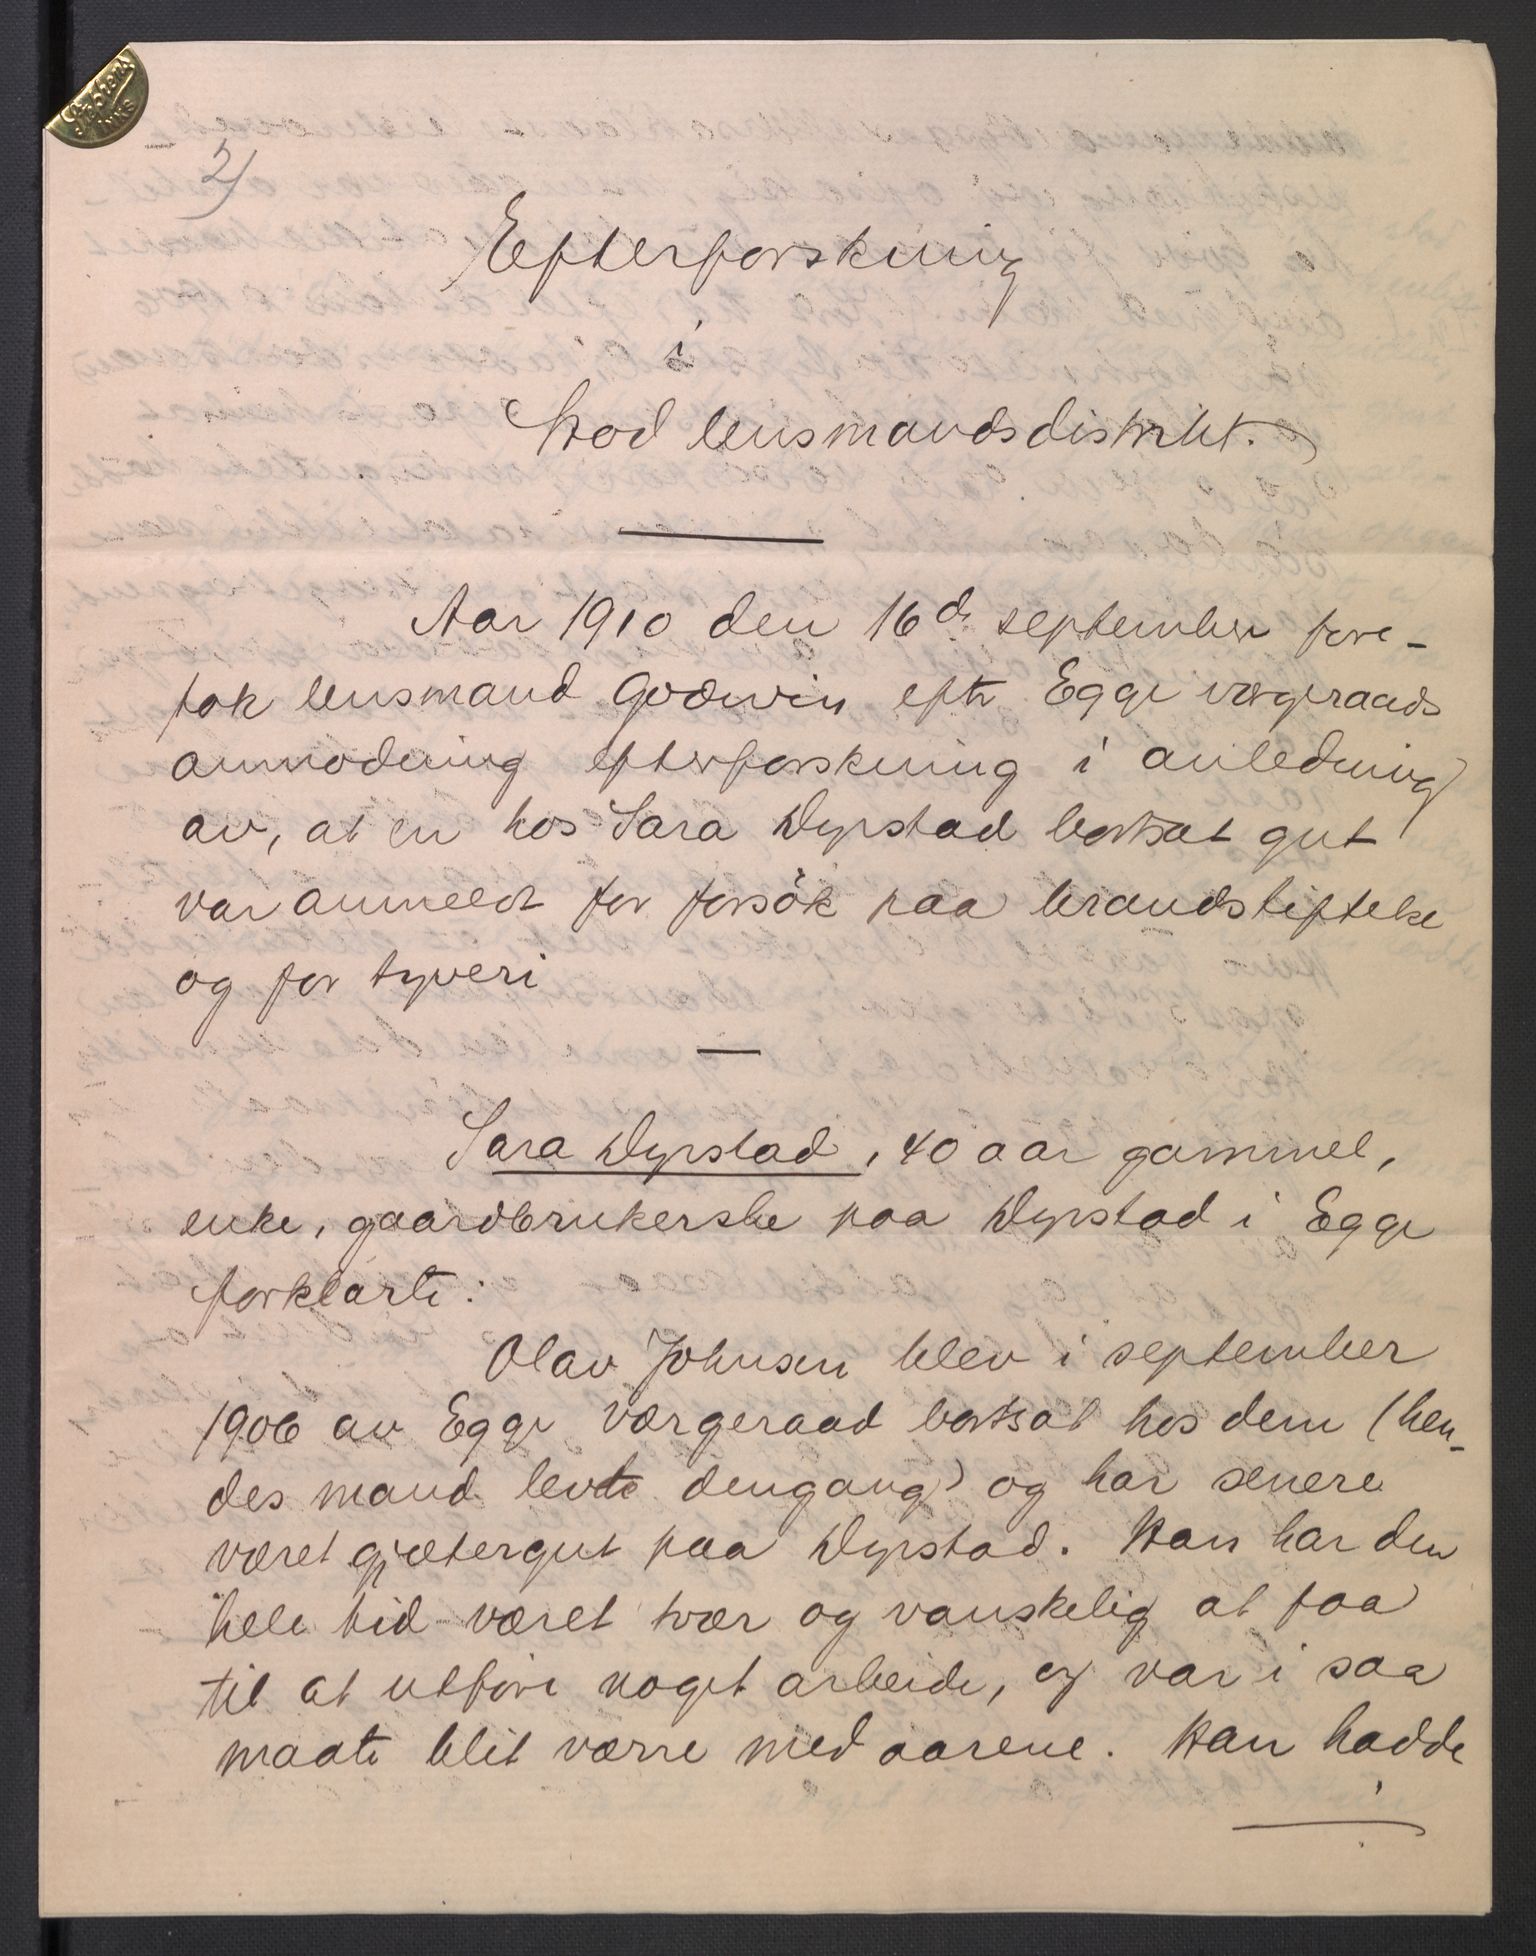 Stephens
INKS
2)
Efterforskning
i
Stod lensmandsdistrikt.
Aar 1910 den 16de september fore-
tok lensmand Godwin efter Egge værgeraads
anmodning efterforskning i anledning
av, at en hos Sara Dyrstad bortsat gut
var anmeldt for forsök paa brandstiftelse
og for tyveri
Sara Dyrstad, 40 aar gammel,
enke, gaardbrukerske paa Dyrstad i Egge
forklarte:
Olav Johnsen blev i september
1906 av Egge værgeraad bortsat hos dem (hen-
des mand levte dengang) og har senere
været gjætergut paa Dyrstad. Han har den
hele tid været tvær og vanskelig at faa
til at utføre noget arbeide, og var i saa
maate blit værre med aarene. Han hadde